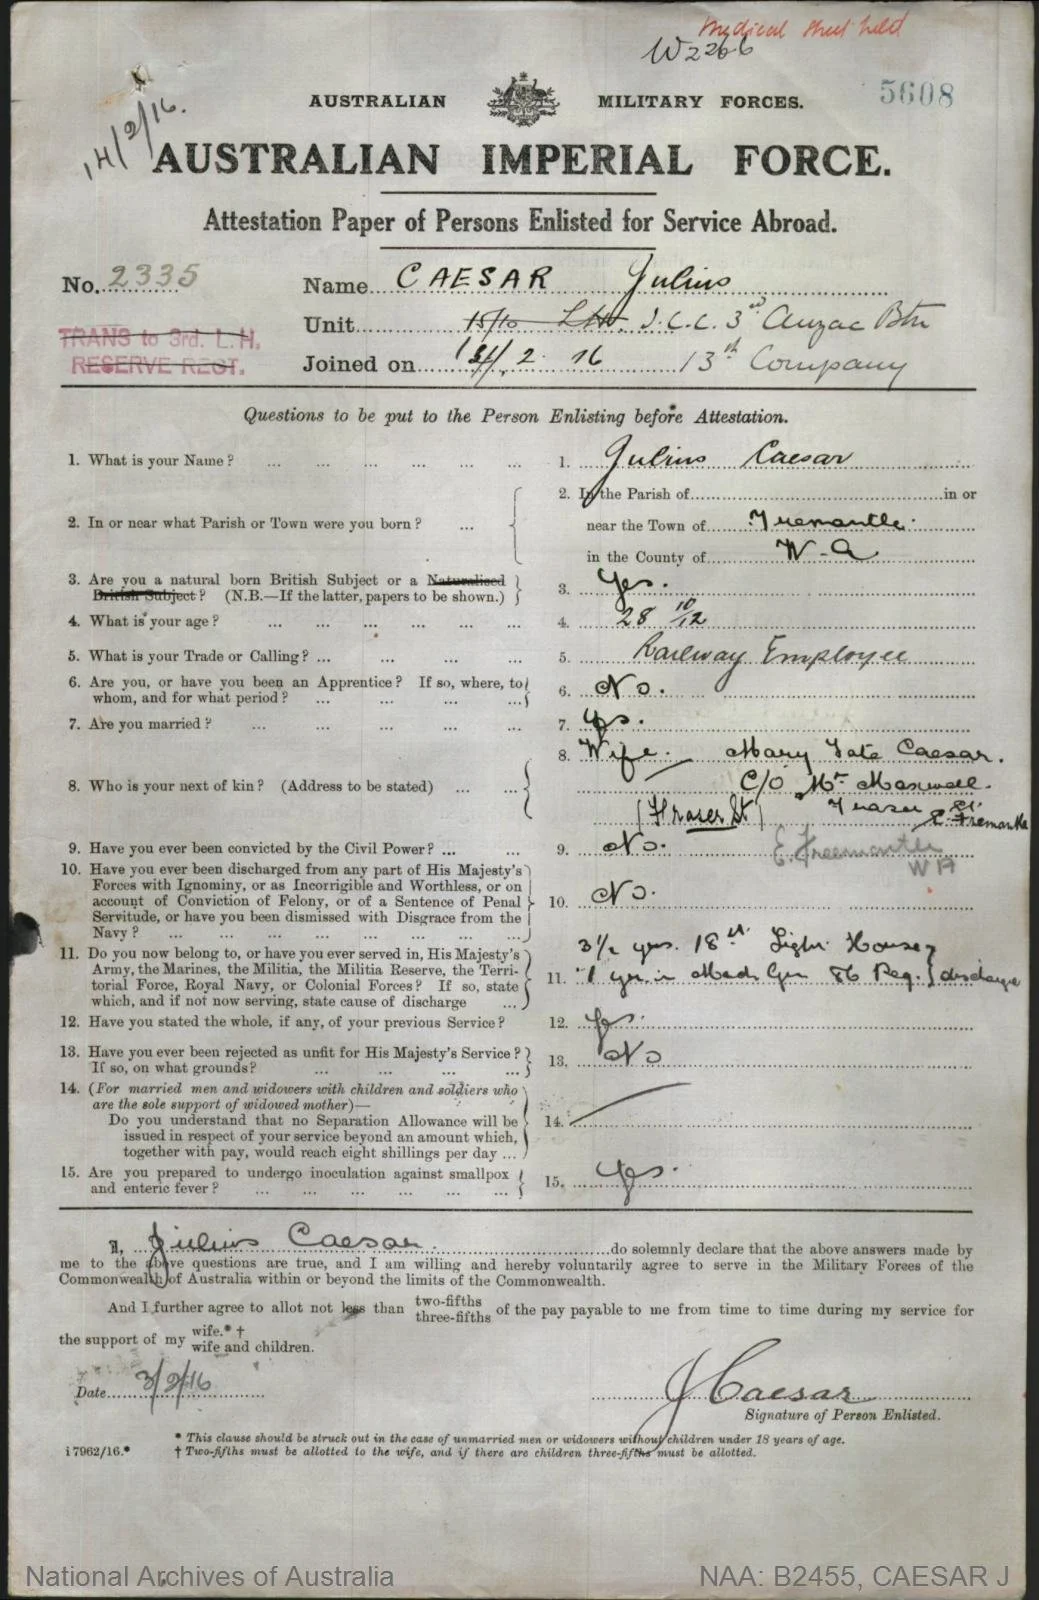 Medical sheet held
W2266
14/2/16.
AUSTRALIAN MILITARY FORCES.
5608
AUSTRALIAN IMPERIAL FORCE.
Attestation Paper of Persons Enlisted for Service Abroad.
No. 2335
Name CAESAR Julius
Unit 15/10 L.H. I.C.C. 3rd Anzac Btn
TRANS to 3rd. L.H.
RESERVE REGT.
Joined on 2. 16 13th Company
Questions to be put to the Person Enlisting before Attestation.
1. What is your Name? ... ... ... ... ... ... 1. Julius Caesar
2. In or near what Parish or Town were you born? ... 2. In the Parish of in or
near the Town of Fremantle.
in the County of W-A
3. Are you a natural born British Subject or a Naturalised
British Subject? (N.B.—If the latter, papers to be shown.) 3. Yes.
4. What is your age? ... ... ... ... ... ... 4. 28 10/12
5. What is your Trade or Calling? ... ... ... ... 5. Railway Employee
6. Are you, or have you been an Apprentice? If so, where, to
whom, and for what period? ... ... ... ... 6. No.
7. Are you married? ... ... ... ... ... 7. Yes.
8. Who is your next of kin? (Address to be stated) ... ... 8. Wife. Mary Tate Caesar.
C/O Mr Maxwell.
(Fraser St) Fraser St. E. Fremantle
E. Freemantle
W A
9. Have you ever been convicted by the Civil Power? ... ... 9. No.
10. Have you ever been discharged from any part of His Majesty's
Forces with Ignominy, or as Incorrigible and Worthless, or on
account of Conviction of Felony, or of a Sentence of Penal
Servitude, or have you been dismissed with Disgrace from the
Navy? ... ... ... ... ... ... ... ... 10. No.
11. Do you now belong to, or have you ever served in, His Majesty's
Army, the Marines, the Militia, the Militia Reserve, the Terri-
torial Force, Royal Navy, or Colonial Forces? If so, state
which, and if not now serving, state cause of discharge ... 11. 3½ yrs. 18th Light Horse
1 yr. in Mach Gun 86 Reg. discharge
12. Have you stated the whole, if any, of your previous Service? 12. Yes.
13. Have you ever been rejected as unfit for His Majesty's Service?
If so, on what grounds? ... ... ... ... 13. No
14. (For married men and widowers with children and soldiers who
are the sole support of widowed mother)—
Do you understand that no Separation Allowance will be
issued in respect of your service beyond an amount which,
together with pay, would reach eight shillings per day ... 14.
15. Are you prepared to undergo inoculation against smallpox
and enteric fever? ... ... ... ... ... ... 15. Yes.
I, Julius Caesar. do solemnly declare that the above answers made by
me to the above questions are true, and I am willing and hereby voluntarily agree to serve in the Military Forces of the
Commonwealth of Australia within or beyond the limits of the Commonwealth.
And I further agree to allot not less than two-fifths three-fifths of the pay payable to me from time to time during my service for
the support of my wife.* † wife and children.
Date 3/2/16
J Caesar
Signature of Person Enlisted.
* This clause should be struck out in the case of unmarried men or widowers without children under 18 years of age.
i 7962/16.* † Two-fifths must be allotted to the wife, and if there are children three-fifths must be allotted.
National Archives of Australia NAA: B2455, CAESAR J